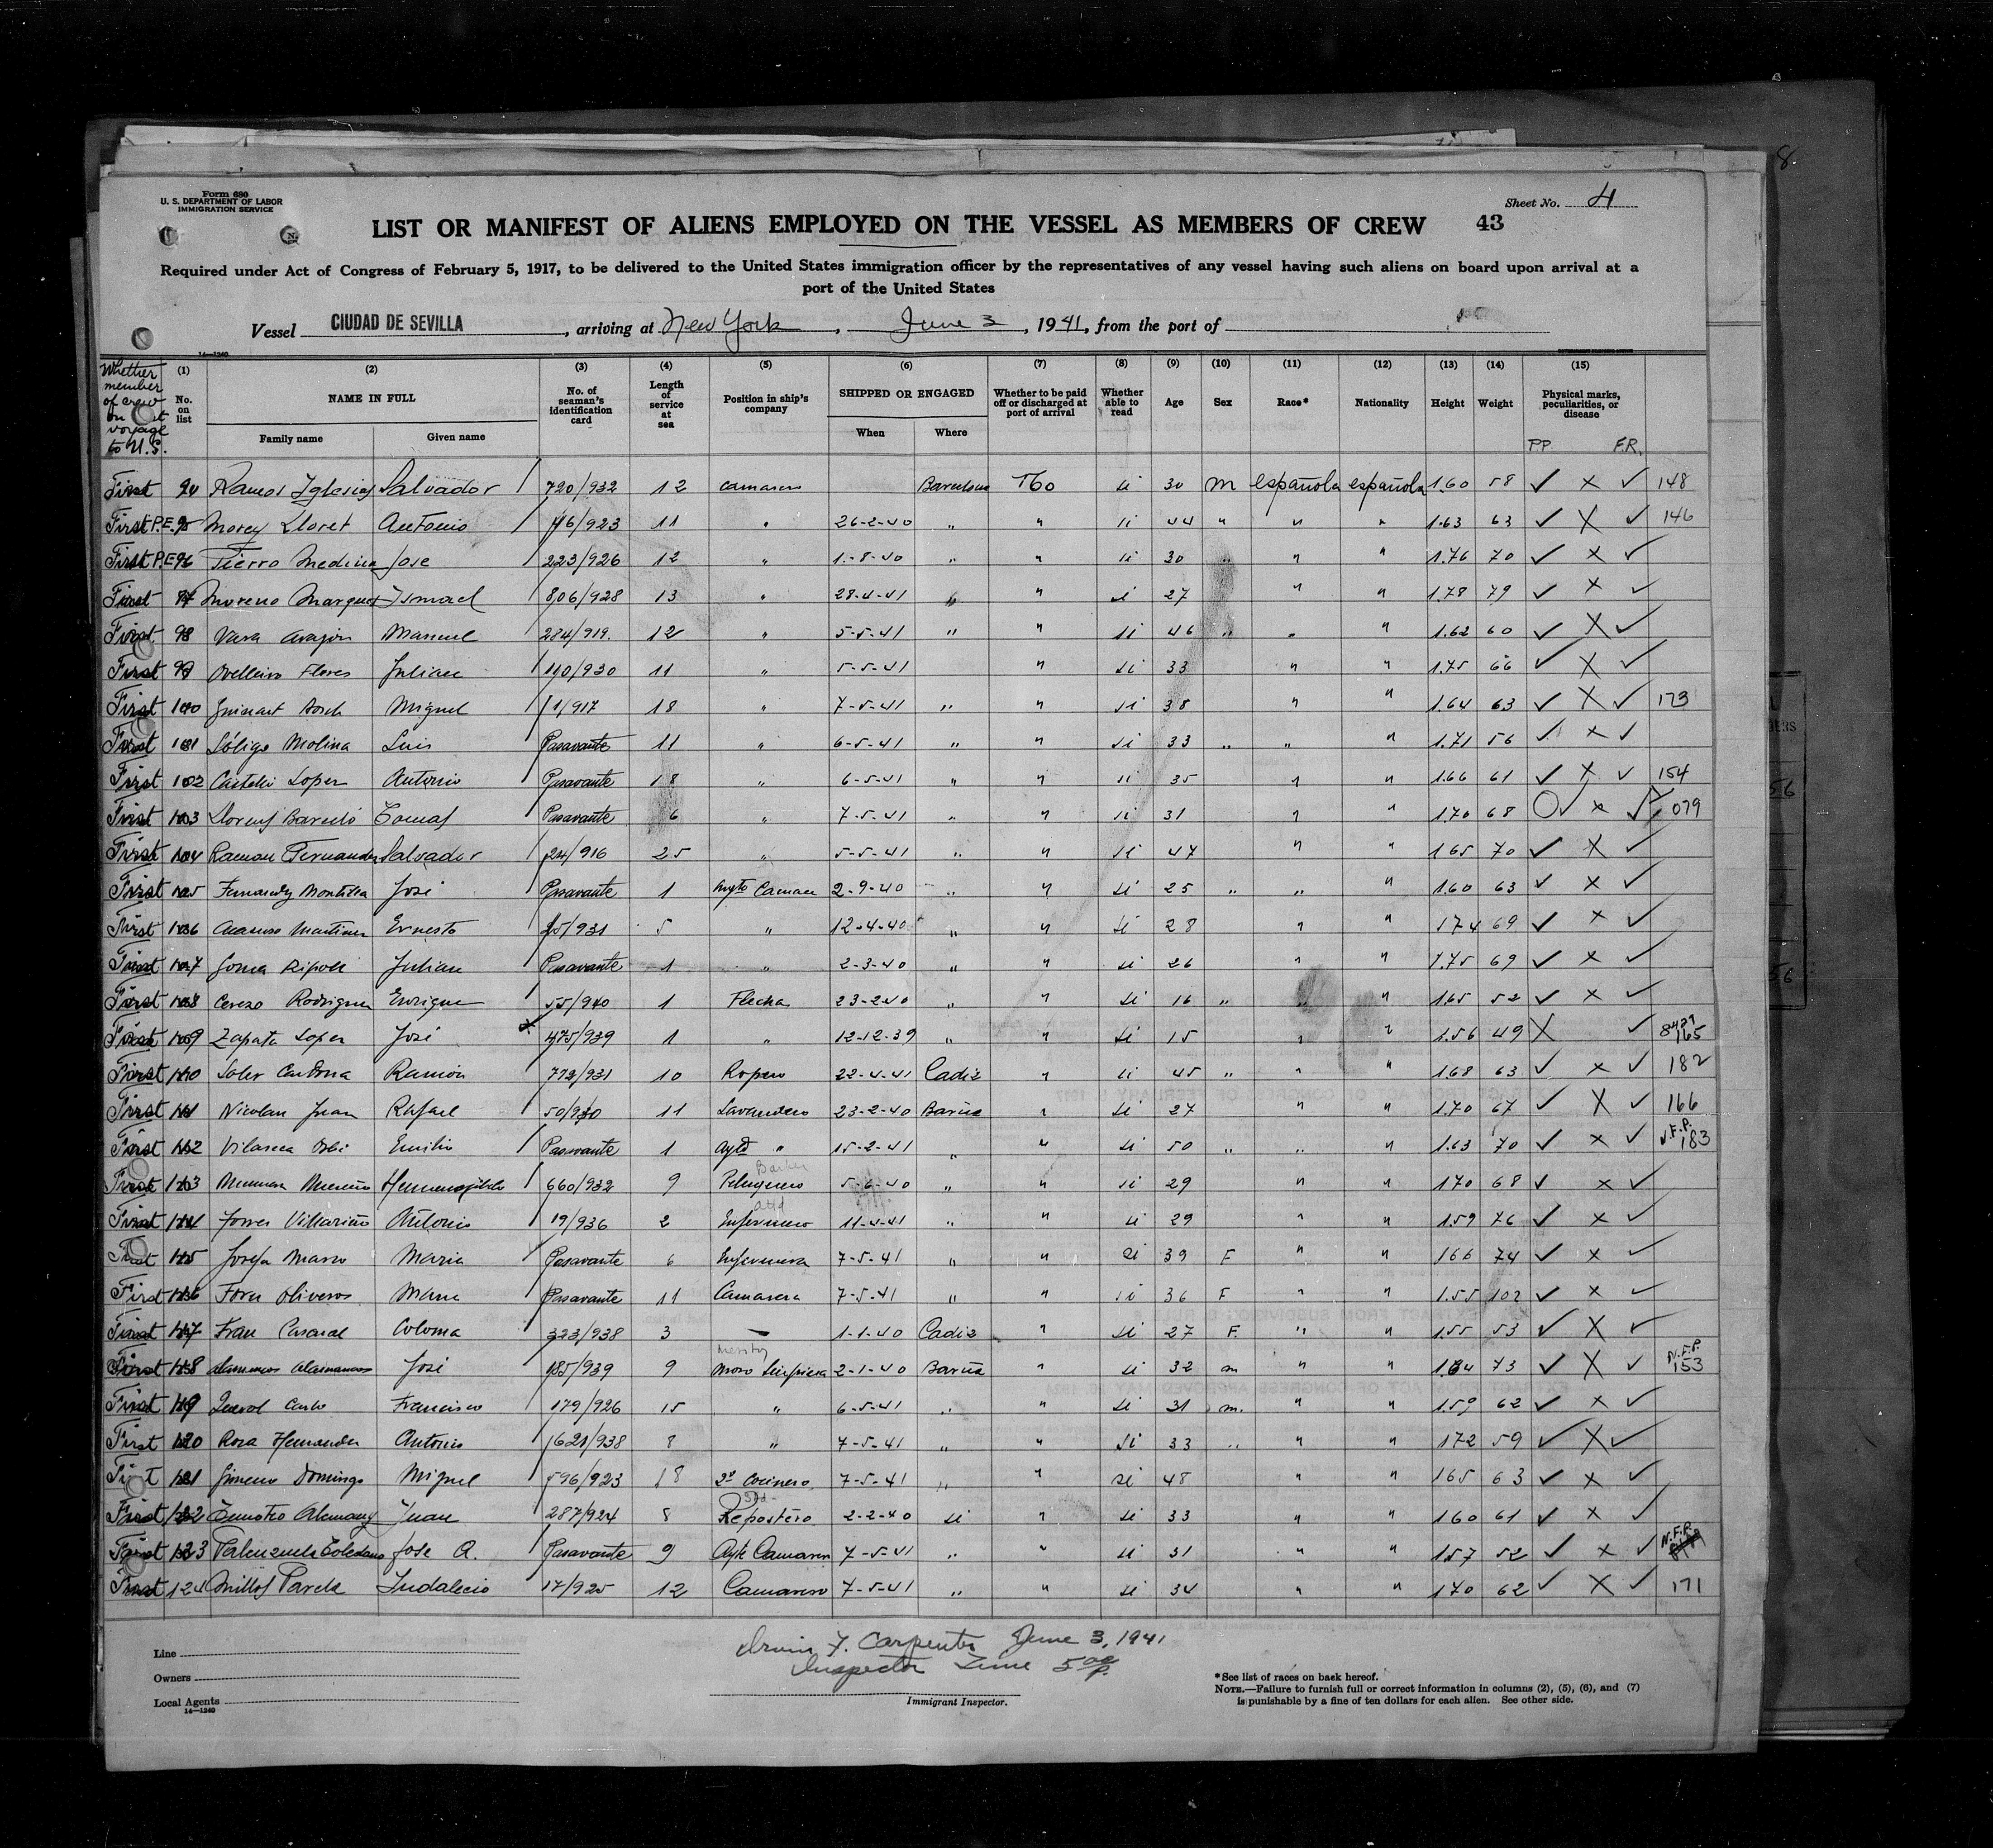 8
Form 680
U. S. DEPARTMENT OF LABOR
IMMIGRATION SERVICE
Sheet No. 4
LIST OR MANIFEST OF ALIENS EMPLOYED ON THE VESSEL AS MEMBERS OF CREW 43
Required under Act of Congress of February 5, 1917, to be delivered to the United States immigration officer by the representatives of any vessel having such aliens on board upon arrival at a
port of the United States
Vessel CIUDAD DE SEVILLA, arriving at New York, June 3, 1941, from the port of
14—1240
Whether member of crew on voyage to U.S. (1) No. on list (2) NAME IN FULL Family name Given name (3) No. of seaman's identification card (4) Length of service at sea (5) Position in ship's company (6) SHIPPED OR ENGAGED When Where (7) Whether to be paid off or discharged at port of arrival (8) Whether able to read (9) Age (10) Sex (11) Race* (12) Nationality (13) Height (14) Weight (15) Physical marks, peculiarities, or disease P.P. F.R.
First 94 Ramos Iglesias Salvador 720/932 12 camarero Barcelona T60 si 30 m española española 1.60 58 ✓ x ✓ 148
First P.E. 95 Morey Lloret Antonio 716/923 11 " 26-2-40 " " si 44 " " " 1.63 63 ✓ X ✓ 146
First P.E. 96 Fierro Medina Jose 223/926 12 " 1-8-40 " " si 30 " " " 1.76 70 ✓ x ✓
First 97 Moreno Marquez Ismael 806/928 13 " 28-4-41 " " si 27 " " 1.78 79 ✓ x ✓
First 98 Vara Aragon Manuel 284/919 12 " 5-5-41 " " si 46 " " " 1.62 60 ✓ X ✓
First 99 Flores Julian 110/930 11 " 5-5-41 " si 33 " " 1.75 66 ✓ X ✓
First 100 Guinart Bosch Miguel 1/917 18 " 7-5-41 " " si 38 " " 1.64 63 ✓ X ✓ 173
First 101 Molina Luis Pasavante 11 " 6-5-41 " " si 33 " " " 1.71 56 ✓ x ✓
First 102 Lopez Antonio Pasavante 18 " 6-5-41 " " si 35 " " 1.66 61 ✓ x ✓ 154
First 103 Llorens Barceló Tomas Pasavante 6 " 7-5-41 " " si 31 " " 1.70 68 ✓ x ✓ 079
First 104 Ramon Fernandez Salvador 24/916 25 " 5-5-41 " " si 47 " " 1.65 70 ✓ X ✓
First 105 Fernandez Montilla José Pasavante 1 Ayte Camare 2-9-40 " " si 25 " " " 1.60 63 ✓ x ✓
First 106 Martinez Ernesto 15/931 5 " 12-4-40 " " si 28 " " 174 69 ✓ x ✓
First 107 Soma Ripoll Julian Pasavante 1 " 2-3-40 " " si 26 " " 1.75 69 ✓ x ✓
First 108 Cerezo Rodriguez Enrique 55/940 1 Flecha 23-2-40 " " si 16 " " " 1.65 52 ✓ x ✓
First 109 Zapata Lopez José 475/939 1 " 12-12-39 " " si 15 " " 1.56 49 X ✓ 165
First 110 Soler Cardona Ramón 772/931 10 Ropero 22-4-41 Cadiz " si 45 " " " 1.68 63 ✓ x ✓ 182
First 111 Nicolau Juan Rafael 50/930 11 Lavandero 23-2-40 Barña " si 27 " " 1.70 67 ✓ X ✓ 166
First 112 Vilaseca Emilio Pasavante 1 Ayte " 15-2-41 " " si 50 " " " 1.63 70 ✓ x ✓ N.F.P. 183
First 113 Hermenegildo 660/932 9 Barber Peluquero 5-6-40 " " si 29 " " 170 68 ✓ x ✓
First 114 Torres Villarino Antonio 19/936 2 Enfermero 11-4-41 " " si 29 " " 1.59 76 ✓ x ✓
First 115 Josefa Marco Maria Pasavante 6 Enfermera 7-5-41 " " si 39 F " " 166 74 ✓ x ✓
First 116 Oliveros Maria Pasavante 11 Camarera 7-5-41 " " si 36 F " " 1.55 102 ✓ x ✓
First 117 Fran Coloma 323/938 3 — 1-1-40 Cadiz " si 27 F. " " 1.55 53 ✓ X ✓
First 118 José 185/939 9 Mozo Limpieza 2-1-40 Barña " si 32 m " " 1.64 73 ✓ X ✓ N.F.P. 153
First 119 Querol Francisco 179/926 15 " 6-5-41 " " si 31 m. " " 1.59 62 ✓ x ✓
First 120 Roca Hernandez Antonio 1621/938 8 " 7-5-41 " " si 33 " " " 172 59 ✓ X ✓
First 121 Gimeno Domingo Miguel 596/923 18 2º Cocinero 7-5-41 " " si 48 " " 165 63 ✓ x ✓
First 122 Alemany Juan 287/924 8 Repostero 2-2-40 si " si 33 " " 160 61 ✓ x ✓
First 123 Valenzuela Toledano Jose A. Pasavante 9 Ayte Camarero 7-5-41 " " si 31 " " 1.57 52 ✓ x ✓ N.F.P.
First 124 Millos Varela Indalecio 17/925 12 Camarero 7-5-41 " " si 34 " " 170 62 ✓ X ✓ 171
Line
Owners
Local Agents
14—1240
Irvin F. Carpenter June 3, 1941
Inspector Time 5 00 P
Immigrant Inspector.
*See list of races on back hereof.
NOTE.—Failure to furnish full or correct information in columns (2), (5), (6), and (7)
is punishable by a fine of ten dollars for each alien. See other side.